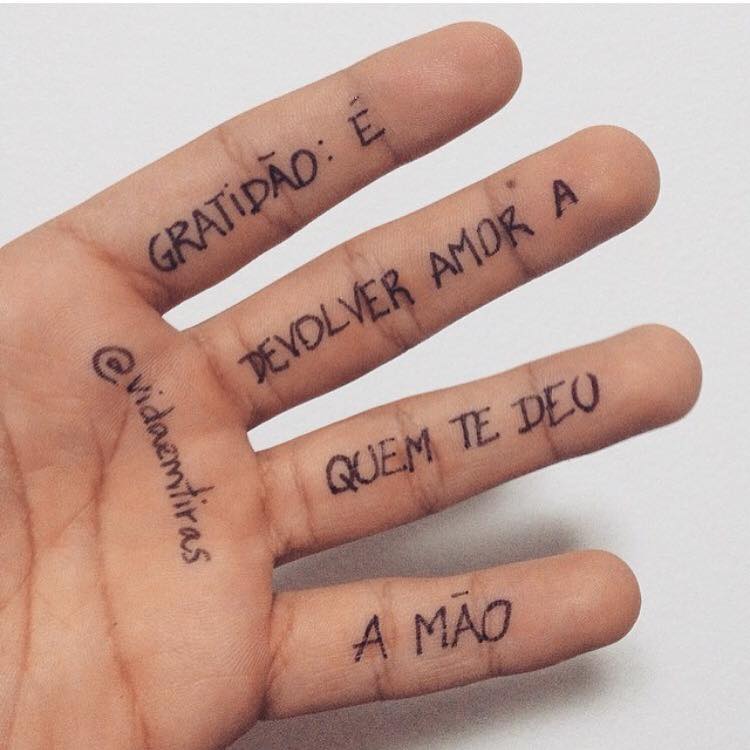 GRATIDÃO: É
DEVOLVER AMOR A
QUEM TE DEU
A MÃO
@vidaemtiras